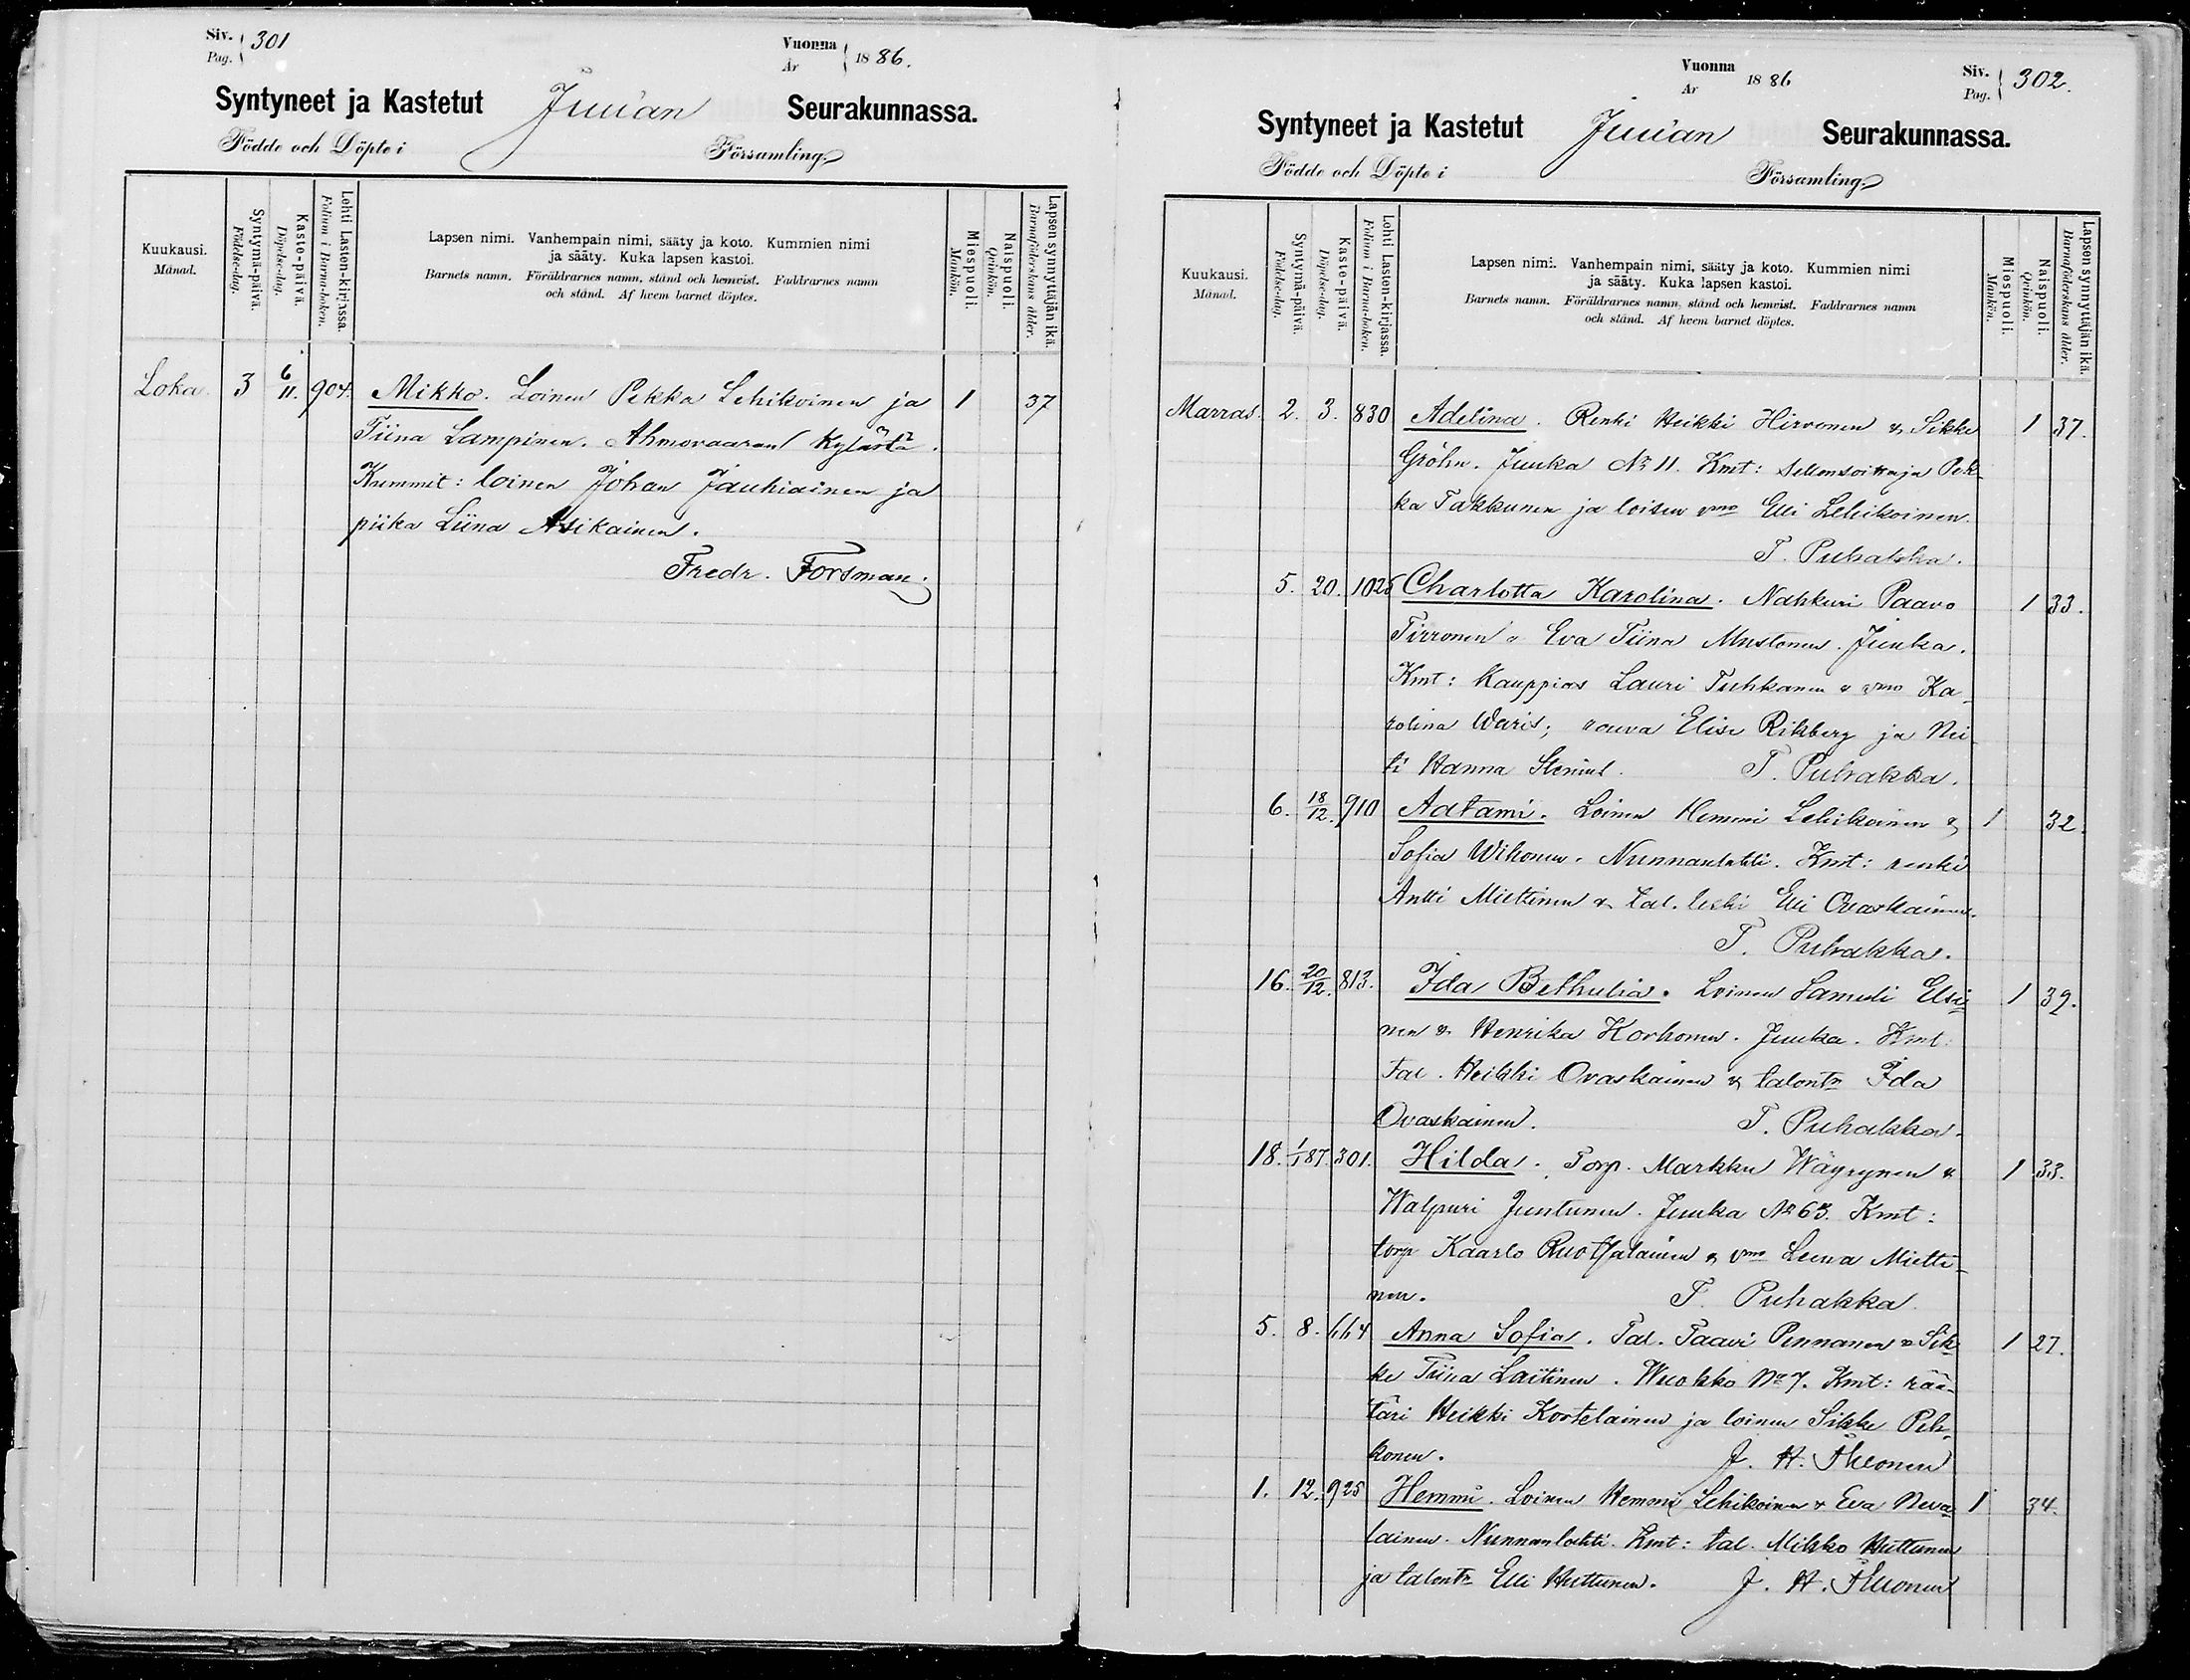 Siv. 301
Pag.
Vuonna 1886.
År
Syntyneet ja Kastetut Juuan Seurakunnassa.
Födde och Döpte i Församling.
Kuukausi.
Månad.
Syntymä-päivä.
Födelse-dag.
Kaste-päivä.
Döpelse-dag.
Lehti Lasten-kirjassa.
Folium i Barna-boken.
Lapsen nimi. Vanhempain nimi, sääty ja koto. Kummien nimi
ja sääty. Kuka lapsen kastoi.
Barnets namn. Föräldrarnes namn, stånd och hemvist. Faddrarnes namn
och stånd. Af hvem barnet döptes.
Miespuoli.
Mankön.
Naispuoli.
Qvinkön.
Lapsen synnyttäjän ikä.
Barnaföderskans ålder.
Loka. 3 6/11. 904. Mikko. Loinen Pekka Lehikoinen ja 1 37
Tiina Lampinen. Ahmovaaran kylästä.
Kummit: loinen Johan Jauhiainen ja
piika Liina Asikainen.
Fredr. Forsman.
Vuonna 1886
År
Siv. 302.
Pag.
Syntyneet ja Kastetut Juuan Seurakunnassa.
Födde och Döpte i Församling.
Kuukausi.
Månad.
Syntymä-päivä.
Födelse-dag.
Kaste-päivä.
Döpelse-dag.
Lehti Lasten-kirjassa.
Folium i Barna-boken.
Lapsen nimi. Vanhempain nimi, sääty ja koto. Kummien nimi
ja sääty. Kuka lapsen kastoi.
Barnets namn. Föräldrarnes namn, stånd och hemvist. Faddrarnes namn
och stånd. Af hvem barnet döptes.
Miespuoli.
Mankön.
Naispuoli.
Qvinkön.
Lapsen synnyttäjän ikä.
Barnaföderskans ålder.
Marras. 2. 3. 830 Adelina. Renki Heikki Hirvonen & Sikke 1 37.
Gröhn. Juuka No 11. Kmt: Pek-
ka Takkunen ja loisen vmo Elli Lehikoinen.
T. Puhakka.
5. 20. 1025 Charlotta Karolina. Nahkuri Paavo 1 33.
Tirronen & Eva Tiina Mustonen. Juuka.
Kmt: Kauppias Lauri Tuhkanen & vmo Ka-
rolina Waris; rouva Elise Rikberg ja Nei-
ti Hanna T. Puhakka.
6. 18/12. 910 Aatami. Loinen Hemmi Lehikoinen & 1 32.
Sofia Wihonen. Nunnanlahti. Kmt: renki
Antti Miettinen & tal. leski Elli Ovaskainen.
T. Puhakka.
16. 20/12. 813. Ida Bethulia. Loinen Samuli Elsi- 1 39.
nen & Henrika Korhonen. Juuka. Kmt:
tal. Heikki Ovaskainen & talontr Ida
Ovaskainen. T. Puhakka.
18. 1/1 87. 301. Hilda. Torp. Markku Wäyrynen & 1 33.
Walpuri Juntunen. Juuka No 63. Kmt:
torp Kaarlo Ruotsalainen & vmo Leena Mietti-
nen. T. Puhakka
5. 8. 664 Anna Sofia. Tal. Taavi Pennanen & Sik- 1 27.
ke Tiina Laitinen. Wuokko No 7. Kmt: rää-
täri Heikki Kortelainen ja loinen Sikke Pek-
konen. J. H.
1. 12. 925 Hemmi. Loinen Hemmi Lehikoinen & Eva Neva- 1 34.
lainen. Nunnanlahti. Kmt: tal. Mikko Huttunen
ja talontr Elli Huttunen. J. H.